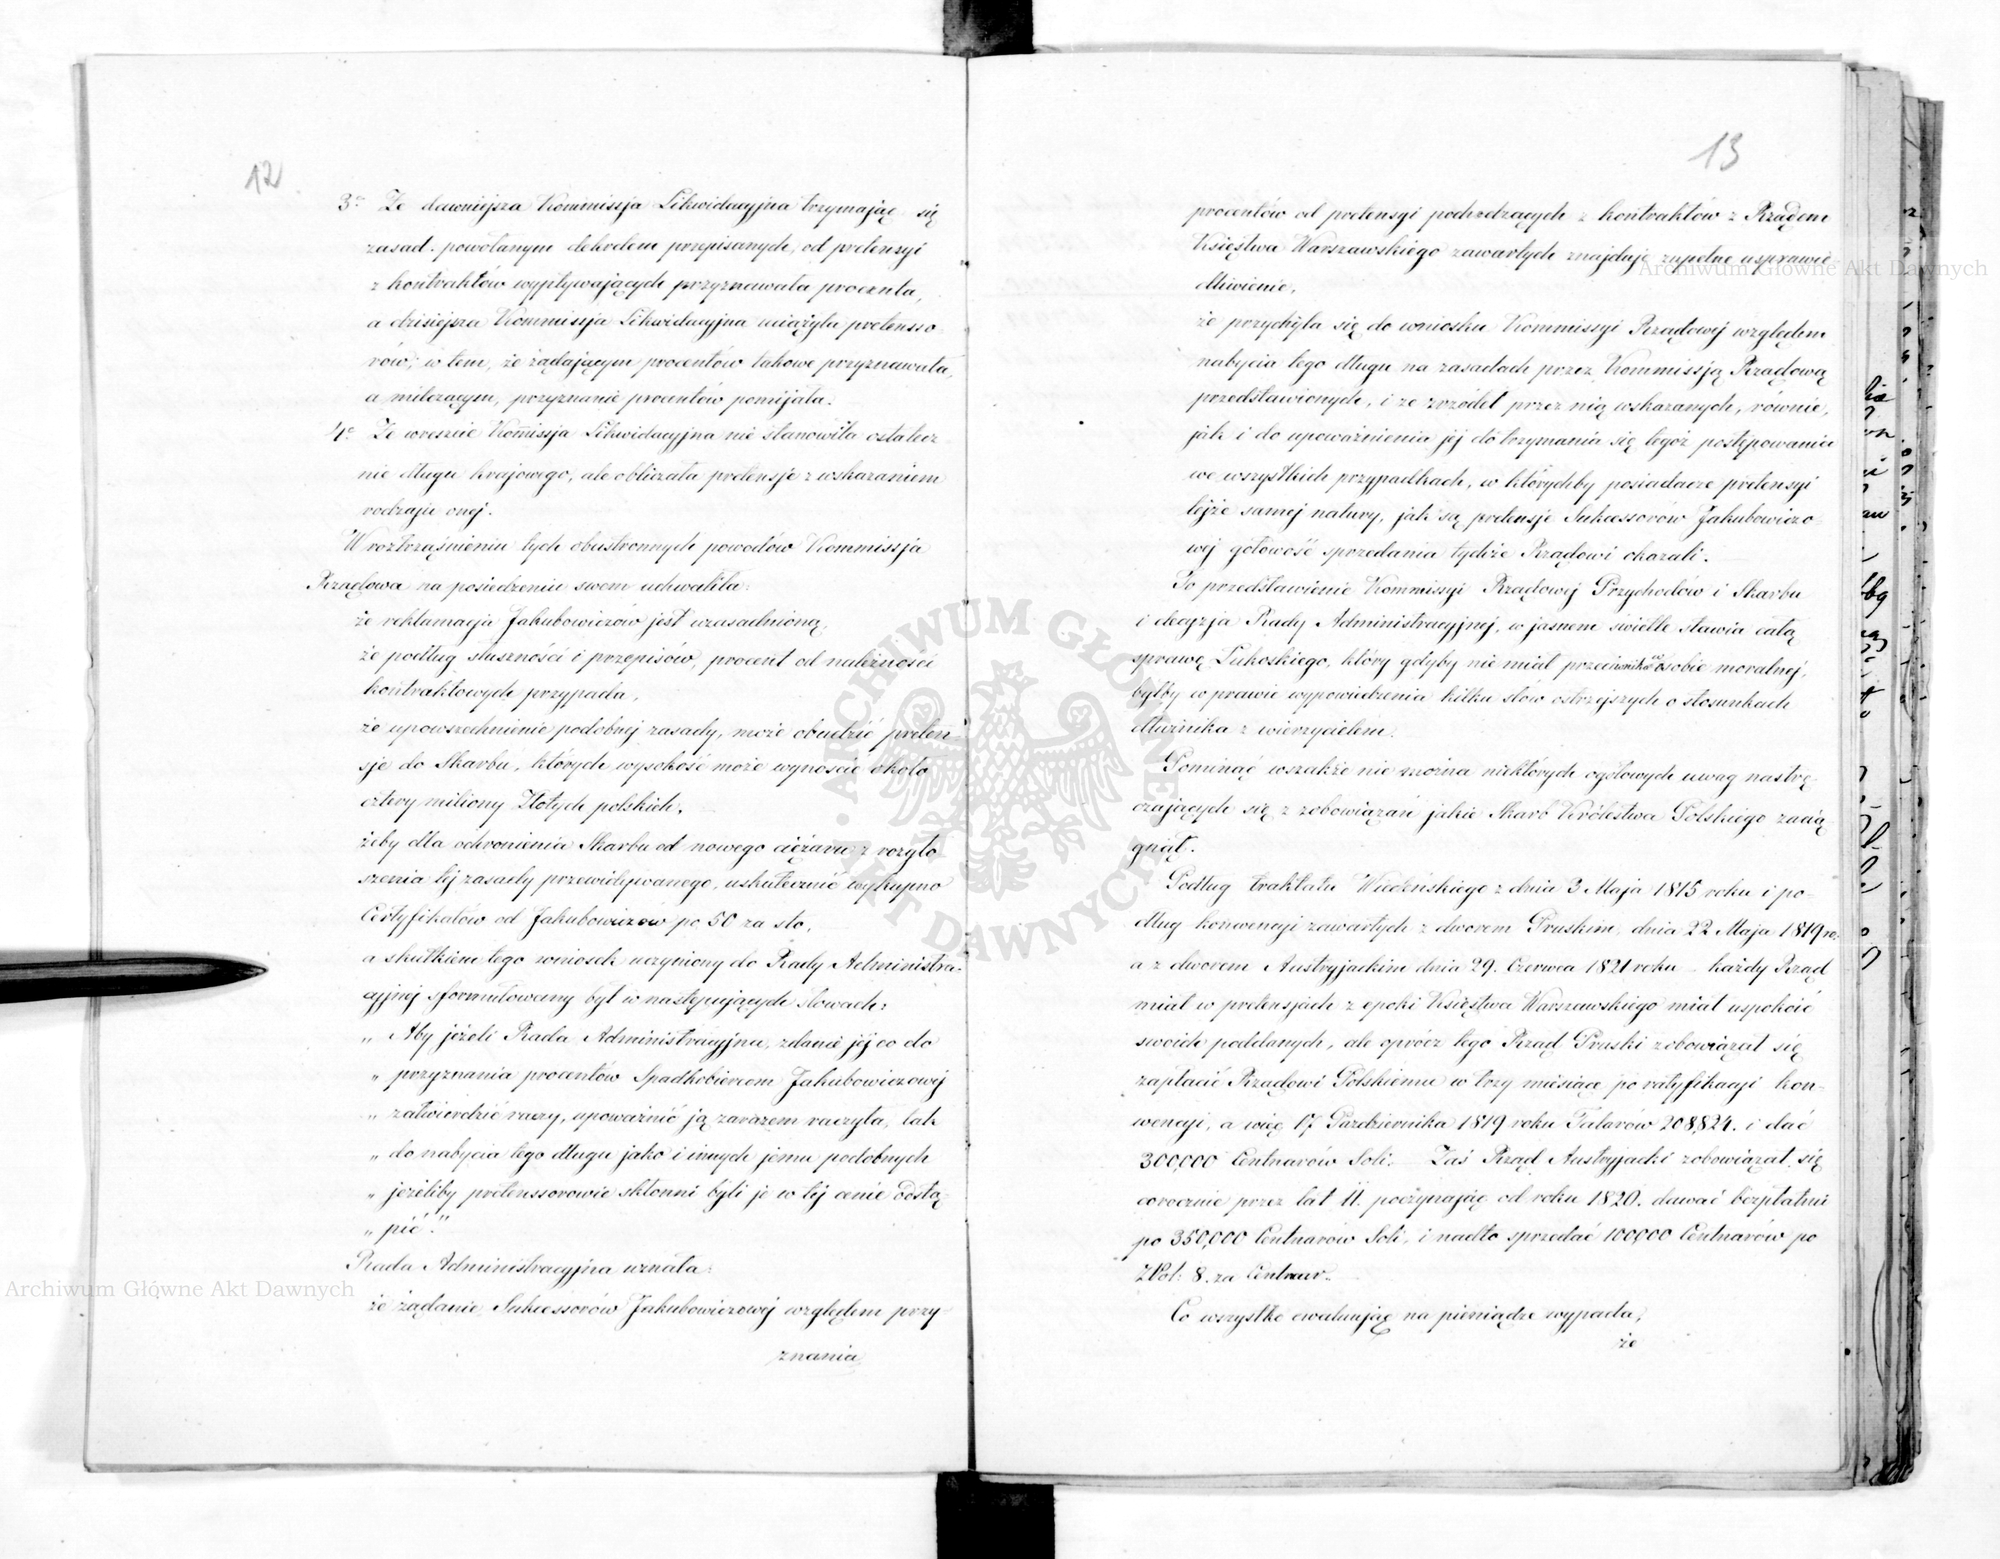 12
3° Ze dawniejsza Kommissja Likwidacyjna trzymając się
zasad powołanym dekretem przepisanych, od pretensyi
z kontraktów wypływających przyznawała procenta,
a dzisiejsza Kommissja Likwidacyjna uciążyła pretenso-
rów, w tem, że żądającym procentów takowe przyznawała,
a milczącym, przyznanie procentów pomijała.
4° Ze wreszcie Kom̄issja Likwidacyjna nie stanowiła ostatecz
nie długu krajowego, ale obliczała pretensje z wskazaniem
rodzaju onej.
W roztrząśnieniu tych obustronnych powodów Kommissja
Rządowa na posiedzeniu swem uchwaliła:
że reklamacja Jakubowiczów jest uzasadnioną,
że podług słuszności i przepisów, procent od należności
kontraktowych przypada,
że upowszechnienie podobnej zasady, może obudzić preten-
sje do Skarbu, których wysokość może wynosić około
cztery miliony Złotych polskich,
żeby dla ochronienia Skarbu od nowego ciężaru z rozgło
szenia tej zasady przewidywanego, uskutecznić wykupno
Certyfikatów od Jakubowiczów po 50 za sto,
a skutkiem tego wniosek uczyniony do Rady Administra-
cyjnej sformułowany był w następujących słowach:
„ Aby jeżeli Rada Administracyjna, zdanie jej co do
„ przyznania procentów Spadkobiercom Jakubowiczowej
„ zatwierdzić raczy, upoważnić ją zarazem raczyła, tak
„ do nabycia tego długu jako i innych jemu podobnych
„ jeżeliby pretenssorowie skłonni byli je w tej cenie odstą-
„ pić."
Rada Administracyjna uznała:
że żądanie Sukcessorów Jakubowiczowej względem przy-
znania
13
procentów od pretensyi pochodzących z kontraktów z Rządem
Księstwa Warszawskiego zawartych znajduje zupełne usprawie
dliwienie,
że przychyla się do wniosku Kommissyi Rządowej względem
nabycia tego długu na zasadach przez Kommissją Rządową
przedstawionych, i ze zrzódeł przez nią wskazanych, równie,
jak i do upoważnienia jej do trzymania się tegoż postępowania
we wszystkich przypadkach, w którychby posiadacze pretensyi
tejże samej natury, jak są pretensje Sukcessorów Jakubowiczo-
wej gotowość sprzedania tychże Rządowi okazali.
To przedstawienie Kommissyi Rządowej Przychodów i Skarbu
i decyzja Rady Administracyjnej, w jasnem świetle stawia całą
sprawę Łukoskiego, który gdyby nie miał przeciwnika w osobie moralnej,
byłby w prawie wypowiedzenia kilku słów ostrzejszych o stosunkach
dłużnika z wierzycielem.
Pominąć wszakże nie można niektórych ogółowych uwag nastrę-
czających się z zobowiązań jakie Skarb Królestwa Polskiego zacią-
gnął.
Podług traktatu Wiedeńskiego z dnia 3 Maja 1815 roku i po-
dług konwencyi zawartych z dworem Pruskim, dnia 22 Maja 1819 ro:
a z dworem Austryjackim dnia 29. Czerwca 1821 roku – każdy Rząd
miał w pretensjach z epoki Księstwa Warszawskiego miał uspokoić
swoich poddanych, ale oprócz tego Rząd Pruski zobowiązał się
zapłacić Rządowi Polskiemu w trzy miesiące po ratyfikacyi kon-
wencyi, a więc 17 Października 1819 roku Talarów 208,824. i dać
300,000 Centnarów Soli. – Zaś Rząd Austryjacki zobowiązał się
corocznie przez lat 11. poczynając od roku 1820. dawać bezpłatnie
po 350,000 Centnarów Soli, i nadto sprzedać 100,000 Centnarów po
ZPol: 8. za Centnar.
Co wszystko ewaluując na pieniądze wypada,
że
Archiwum Główne Akt Dawnych
Archiwum Główne Akt Dawnych
ARCHIWUM GŁÓWNE AKT DAWNYCH